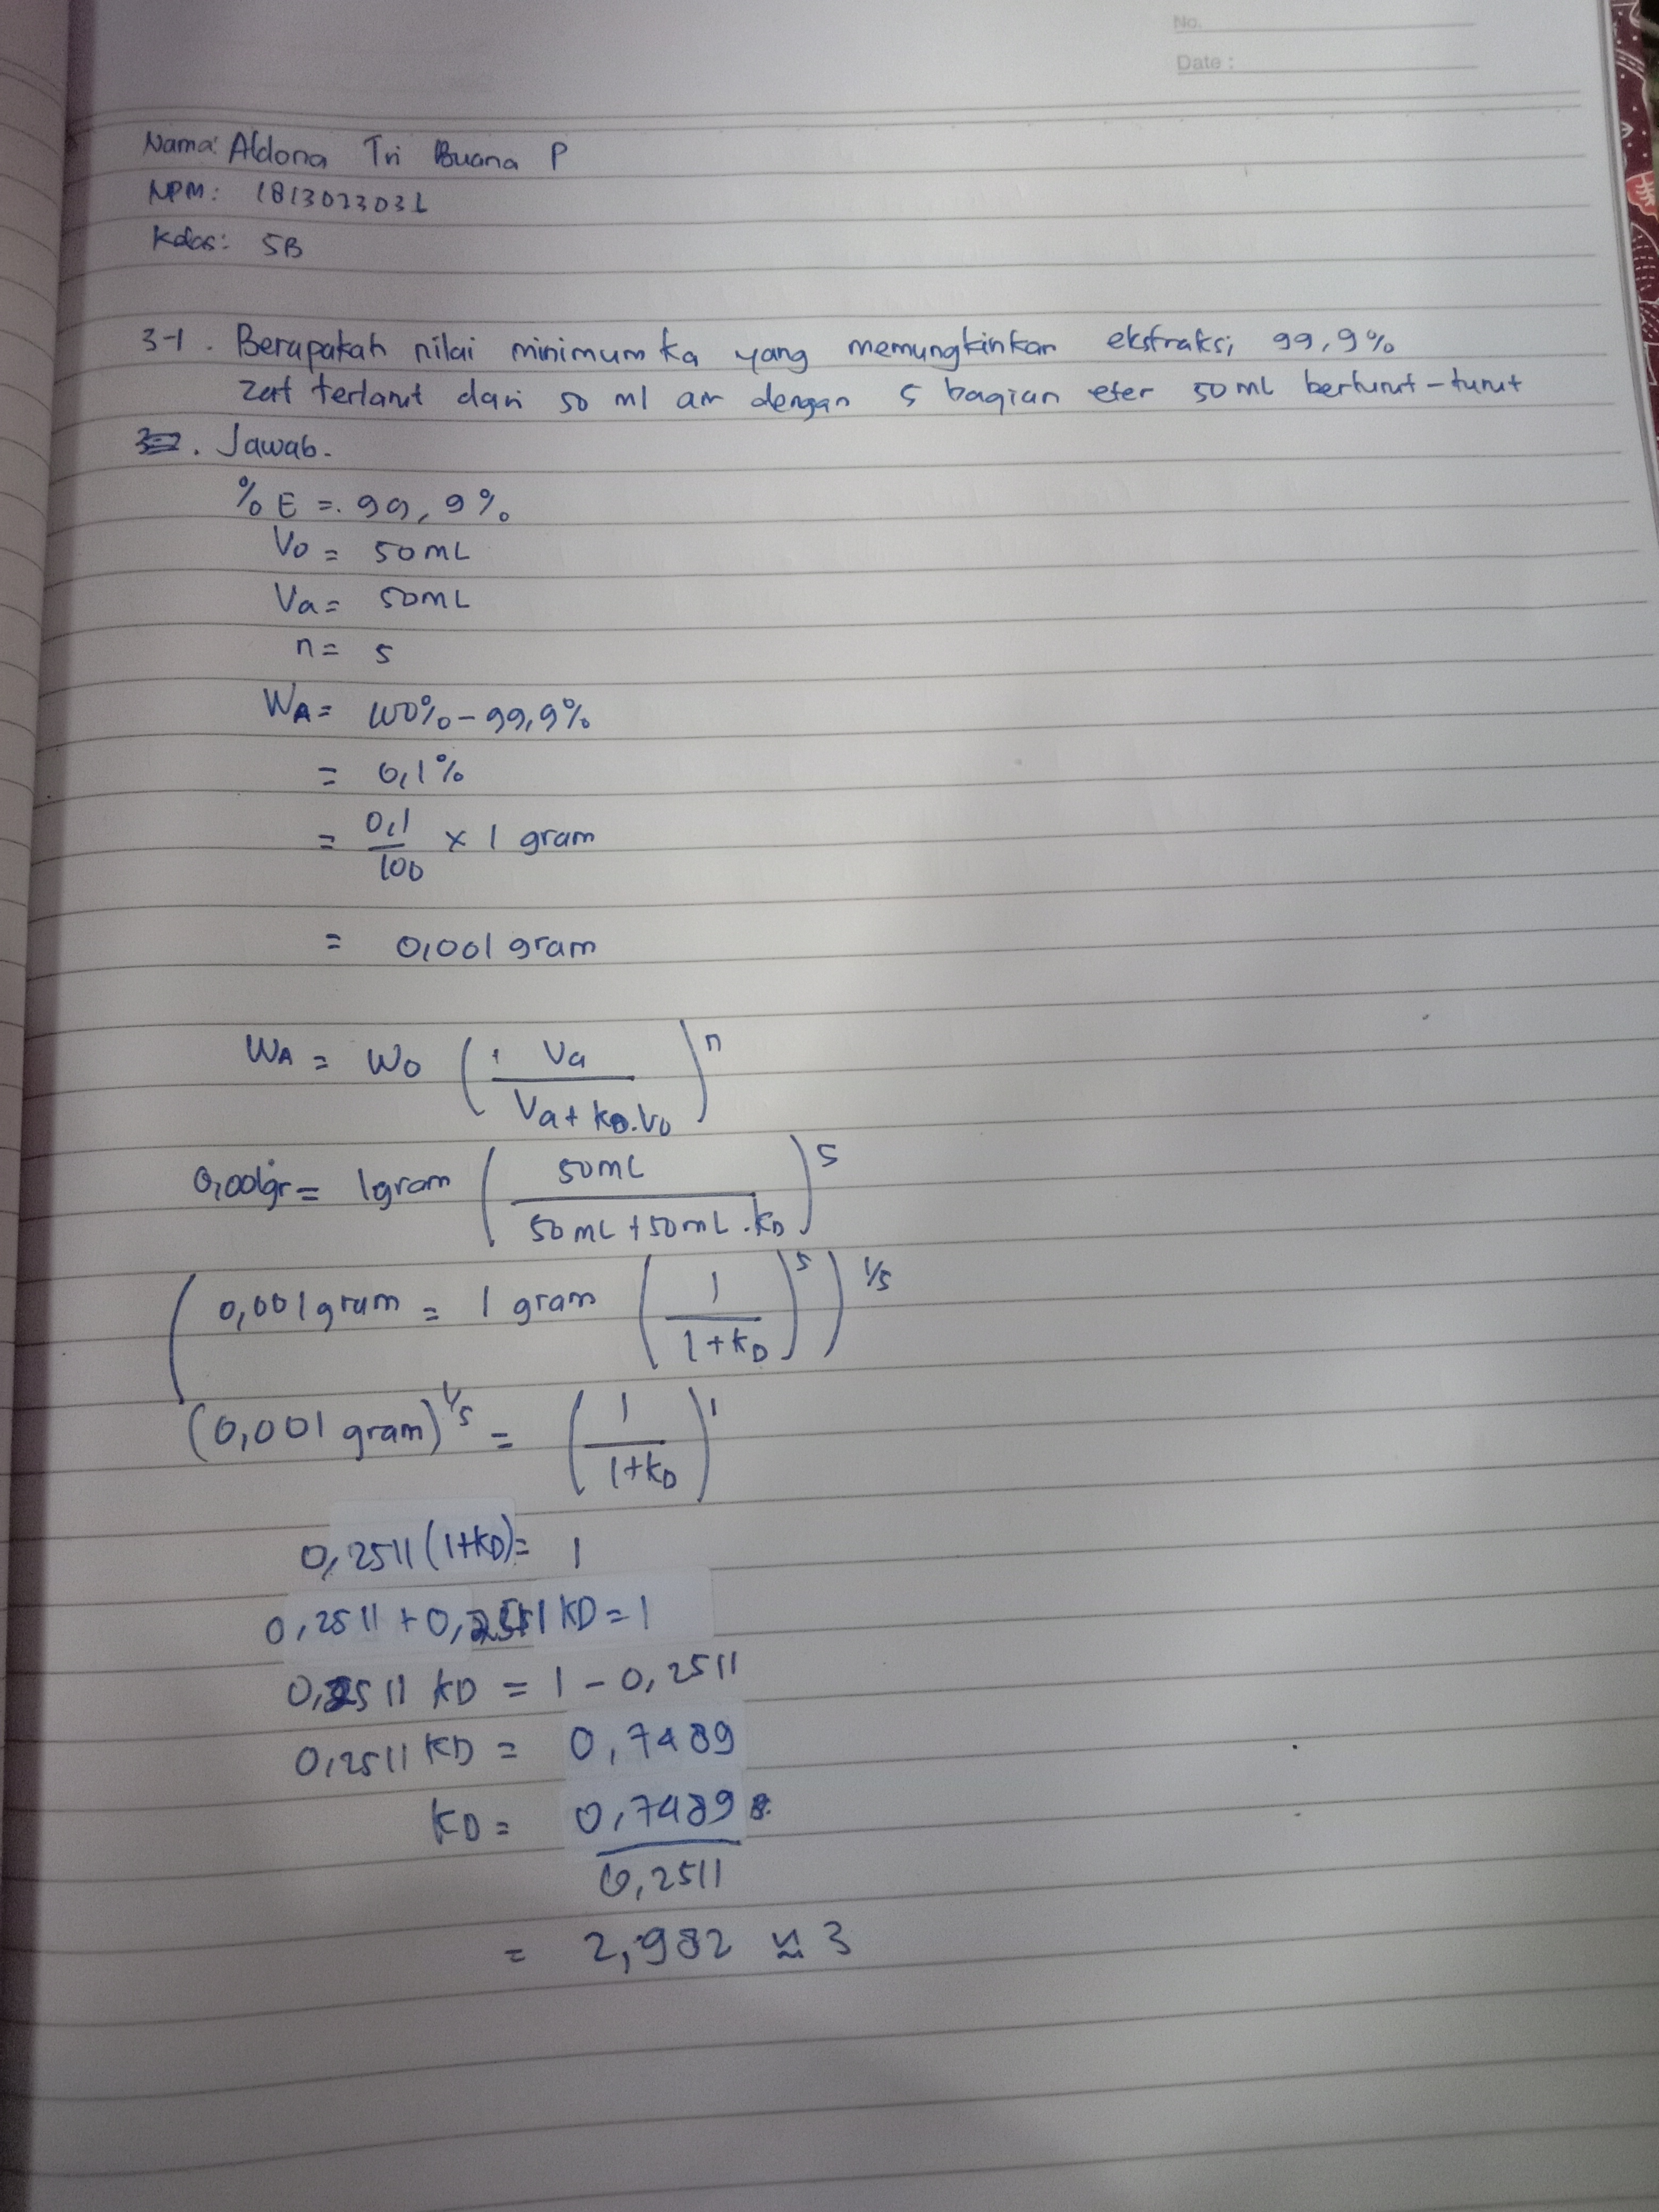 No.
Date :
Nama: Aldona Tri Buana P
NPM: 1813023031
Kelas: 5B
3-1. Berapakah nilai minimum ka yang memungkinkan ekstraksi 99,9%
zat terlarut dari 50 ml air dengan 5 bagian eter 50 mL berturut-turut
Jawab.
% E = 99,9%
Vo = 50 mL
Va = 50mL
n = 5
WA = 100% - 99,9%
= 0,1%
= 0,1/100 x 1 gram
= 0,001 gram
WA = Wo (Va / Va + KD.Vo)^n
0,001gr = 1gram (50mL / 50 mL + 50 mL . KD)^5
(0,001 gram = 1 gram (1 / 1+KD)^5)^1/5
(0,001 gram)^1/5 = (1 / 1+KD)^1
0,2511 (1+KD) = 1
0,2511 + 0,2511 KD = 1
0,2511 KD = 1 - 0,2511
0,2511 KD = 0,7489
KD = 0,7489 / 0,2511
= 2,982 ≈ 3